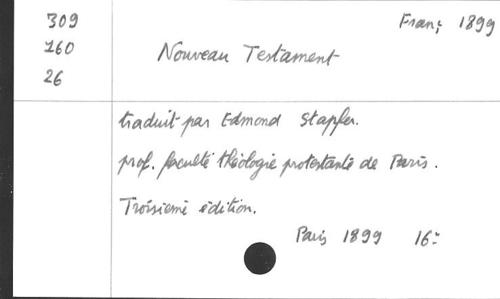 309 Franç 1899
160 Nouveau Testament
26
traduit par Edmond Stapfer.
prof. faculté théologie protestante de Paris.
Troisième édition.
Paris 1899 16°